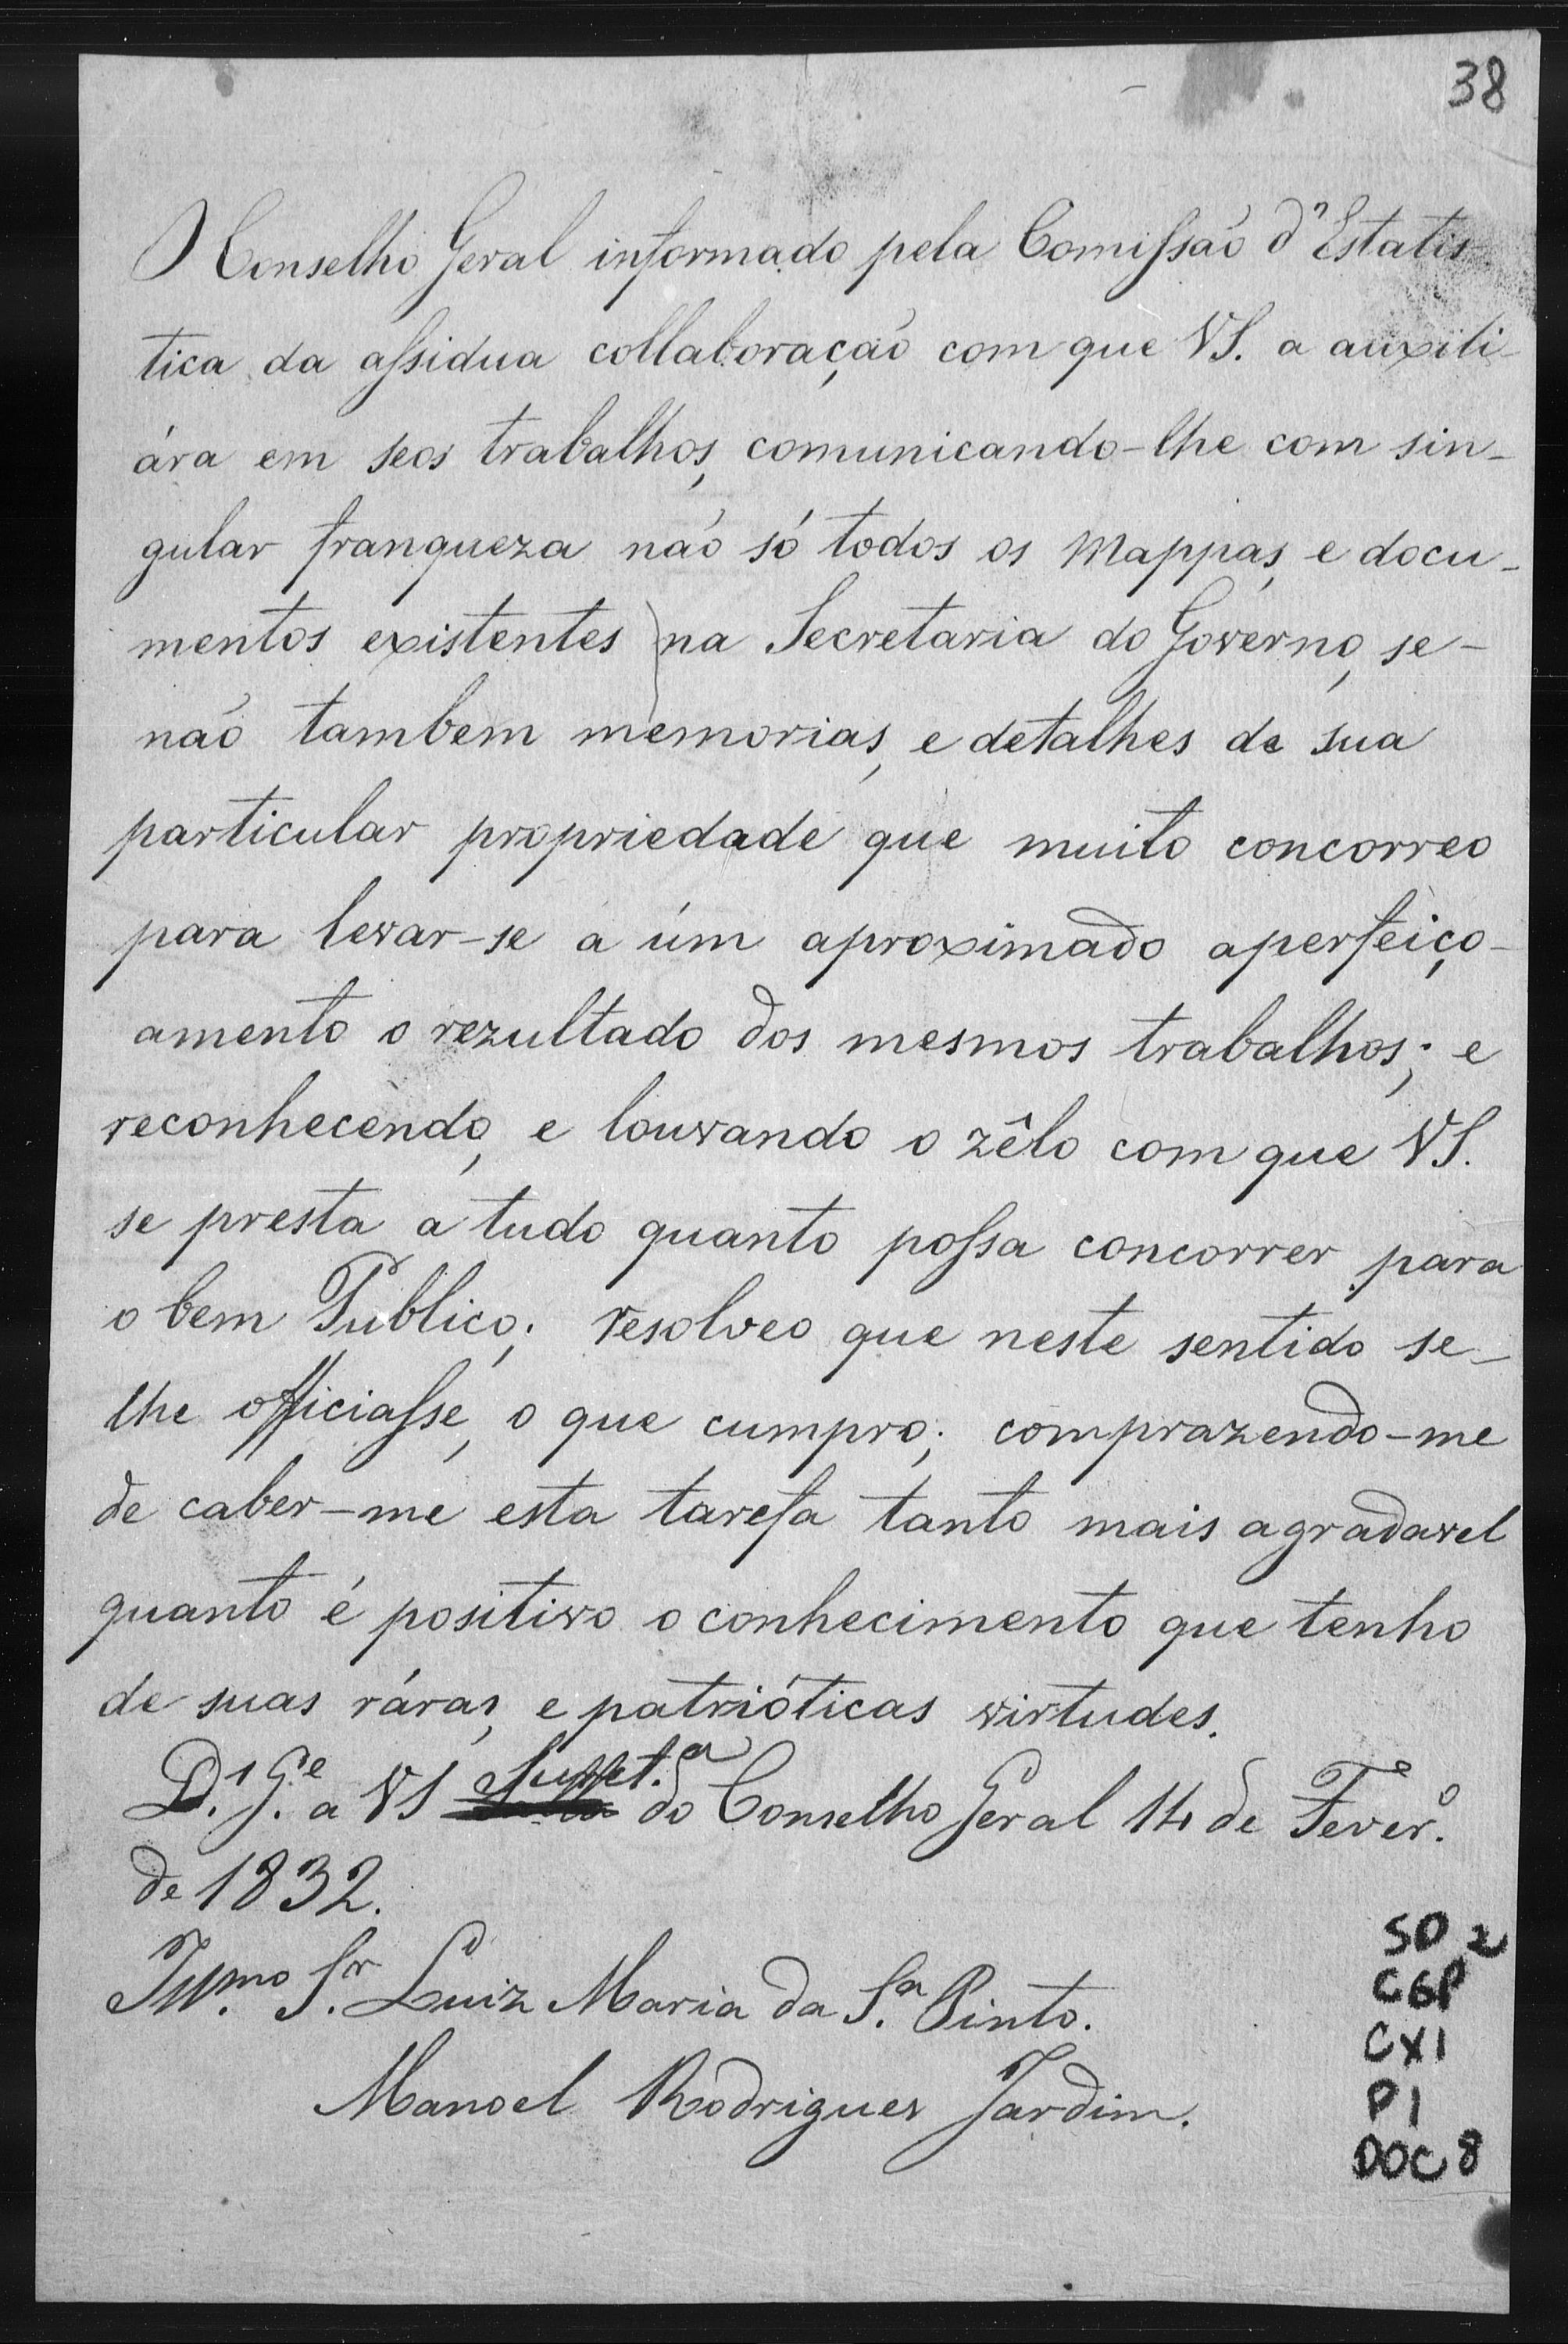 38
O Conselho Geral informado pela Comissão d'Estatis-
tica da assidua collaboração com que VS. a auxili-
ára em seos trabalhos, comunicando-lhe com sin-
gular franqueza não só todos os Mappas, e docu-
mentos existentes na Secretaria do Governo, se-
não tambem memorias, e detalhes de sua
particular propriedade que muito concorreo
para levar-se a úm aproximado aperfeiço-
amento o rezultado dos mesmos trabalhos; e
reconhecendo, e louvando o zêlo com que VS.
se presta a tudo quanto possa concorrer para
o bem Publico; resolveo que neste sentido se-
lhe officiasse, o que cumpro; comprazendo-me
de caber-me esta tarefa tanto mais agradavel
quanto é positivo o conhecimento que tenho
de suas ráras, e patrióticas virtudes.
D.s G.e a VS do Conselho Geral 14 de Fever.o
de 1832.
Ill.mo S.r Luiz Maria da S.a Pinto.
Manoel Rodrigues Jardim.
SD 2
CGP
CX1
P1
DOC 8